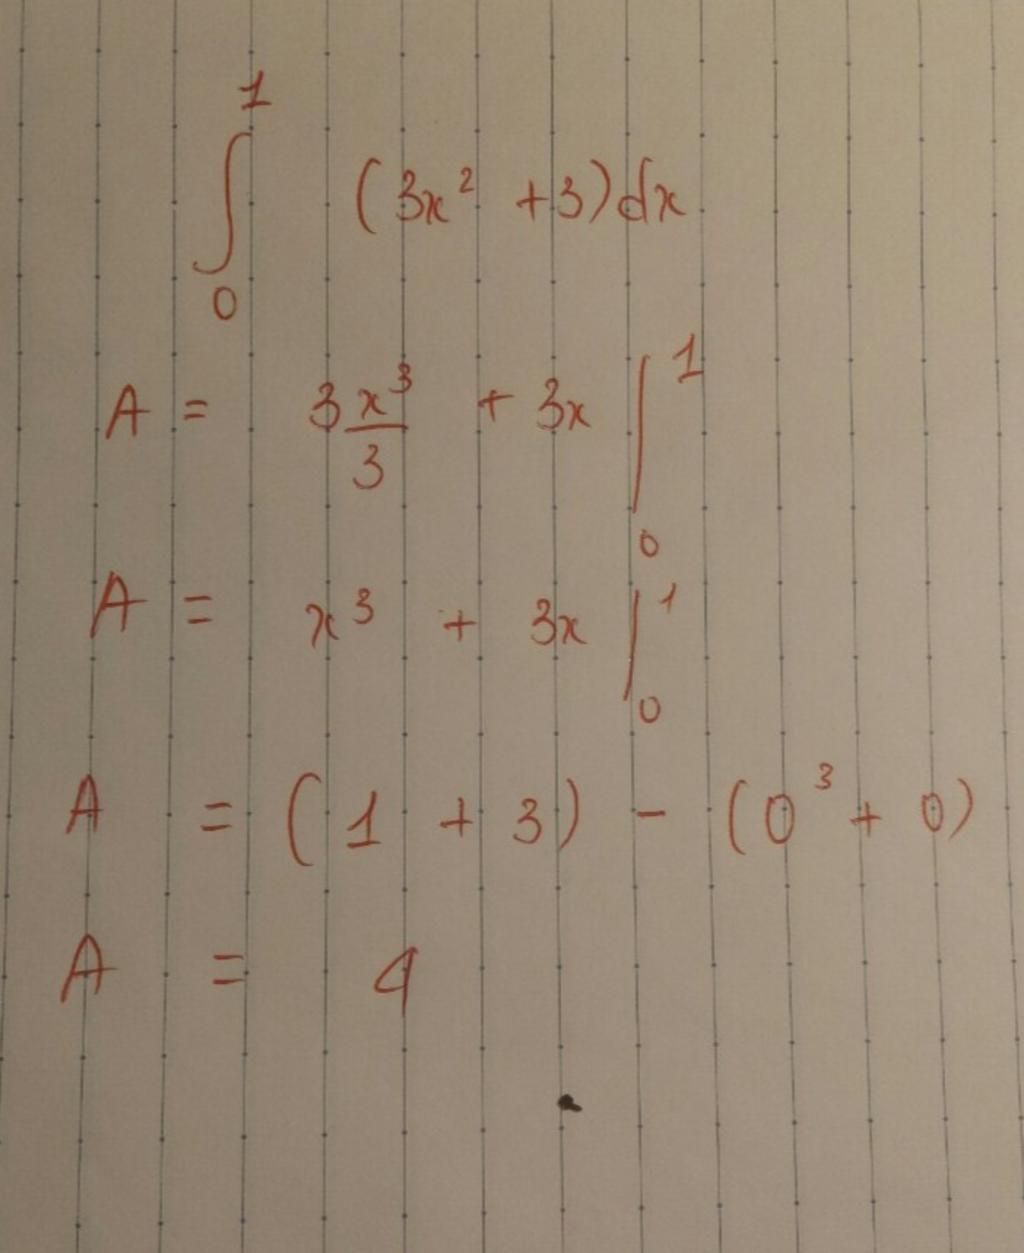 ∫₀¹ (3x² + 3)dx
A = 3x³/3 + 3x |₀¹
A = x³ + 3x |₀¹
A = (1 + 3) - (0³ + 0)
A = 4